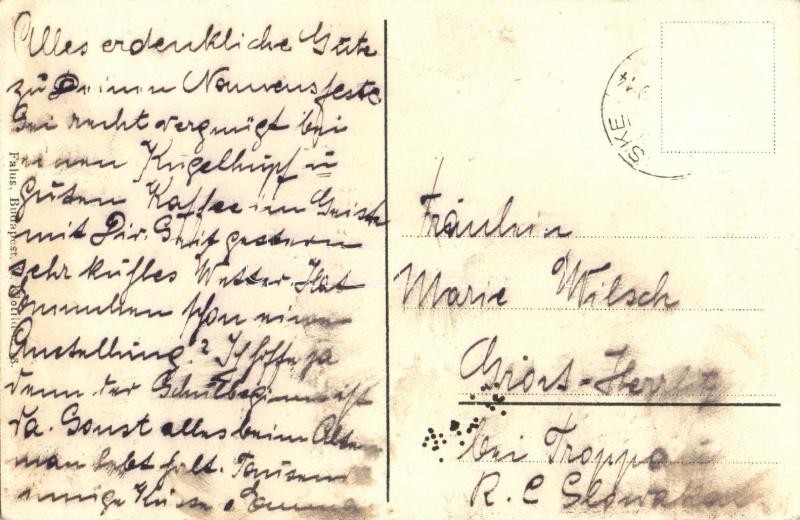 Alles erdenkliche Gute
zu Deinem Namensfeste
Sei recht vergnügt bei
einen Kugelhupf u
guten Kaffee im Geiste
mit Dir. Seit gestern
sehr kühles Wetter. Hat
schon einen
Anstellung? Ich hoffe ja
denn der Schulbeginn ist
da. Sonst alles beim Alten
man lebt halt. Tausend
innige Küsse Emma
Falus, Budapest,
SKE
914
Fräulein
Marie Wilsch
Gross-Herrlitz
bei Troppau